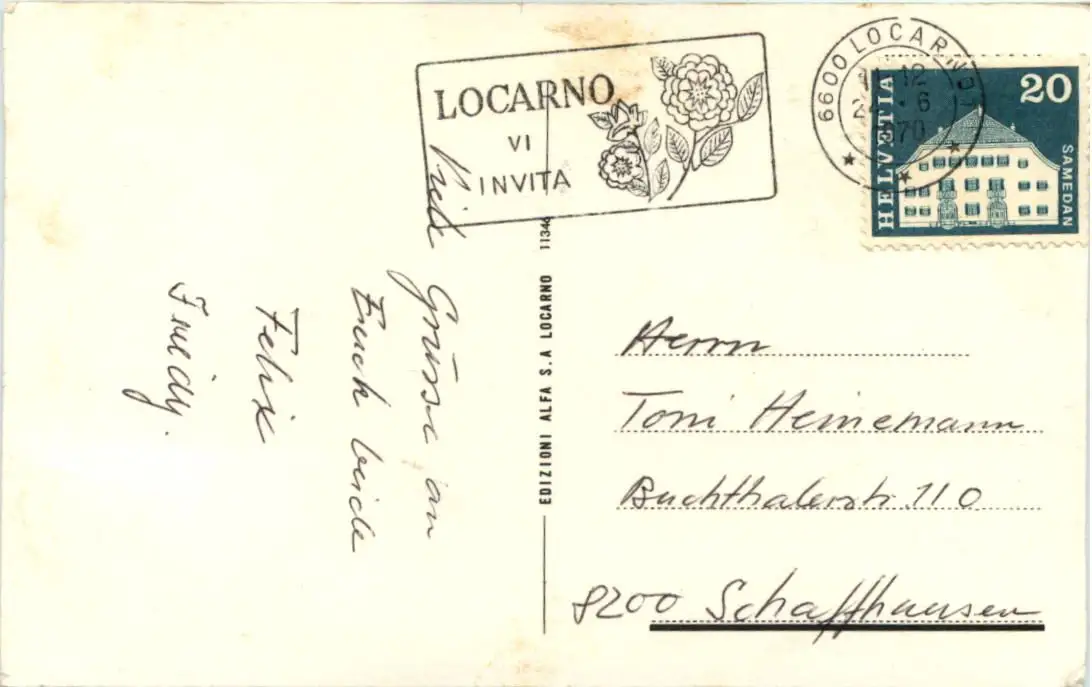 LOCARNO
VI
INVITA
6600 LOCARNO 1
HELVETIA
20
SAMEDAN
viele
Grüsse an
Euch beide
Felix
Friedy.
EDIZIONI ALFA S.A LOCARNO 11346
Herrn
Toni Heinemann
Buchthalerstr. 110
8200 Schaffhausen